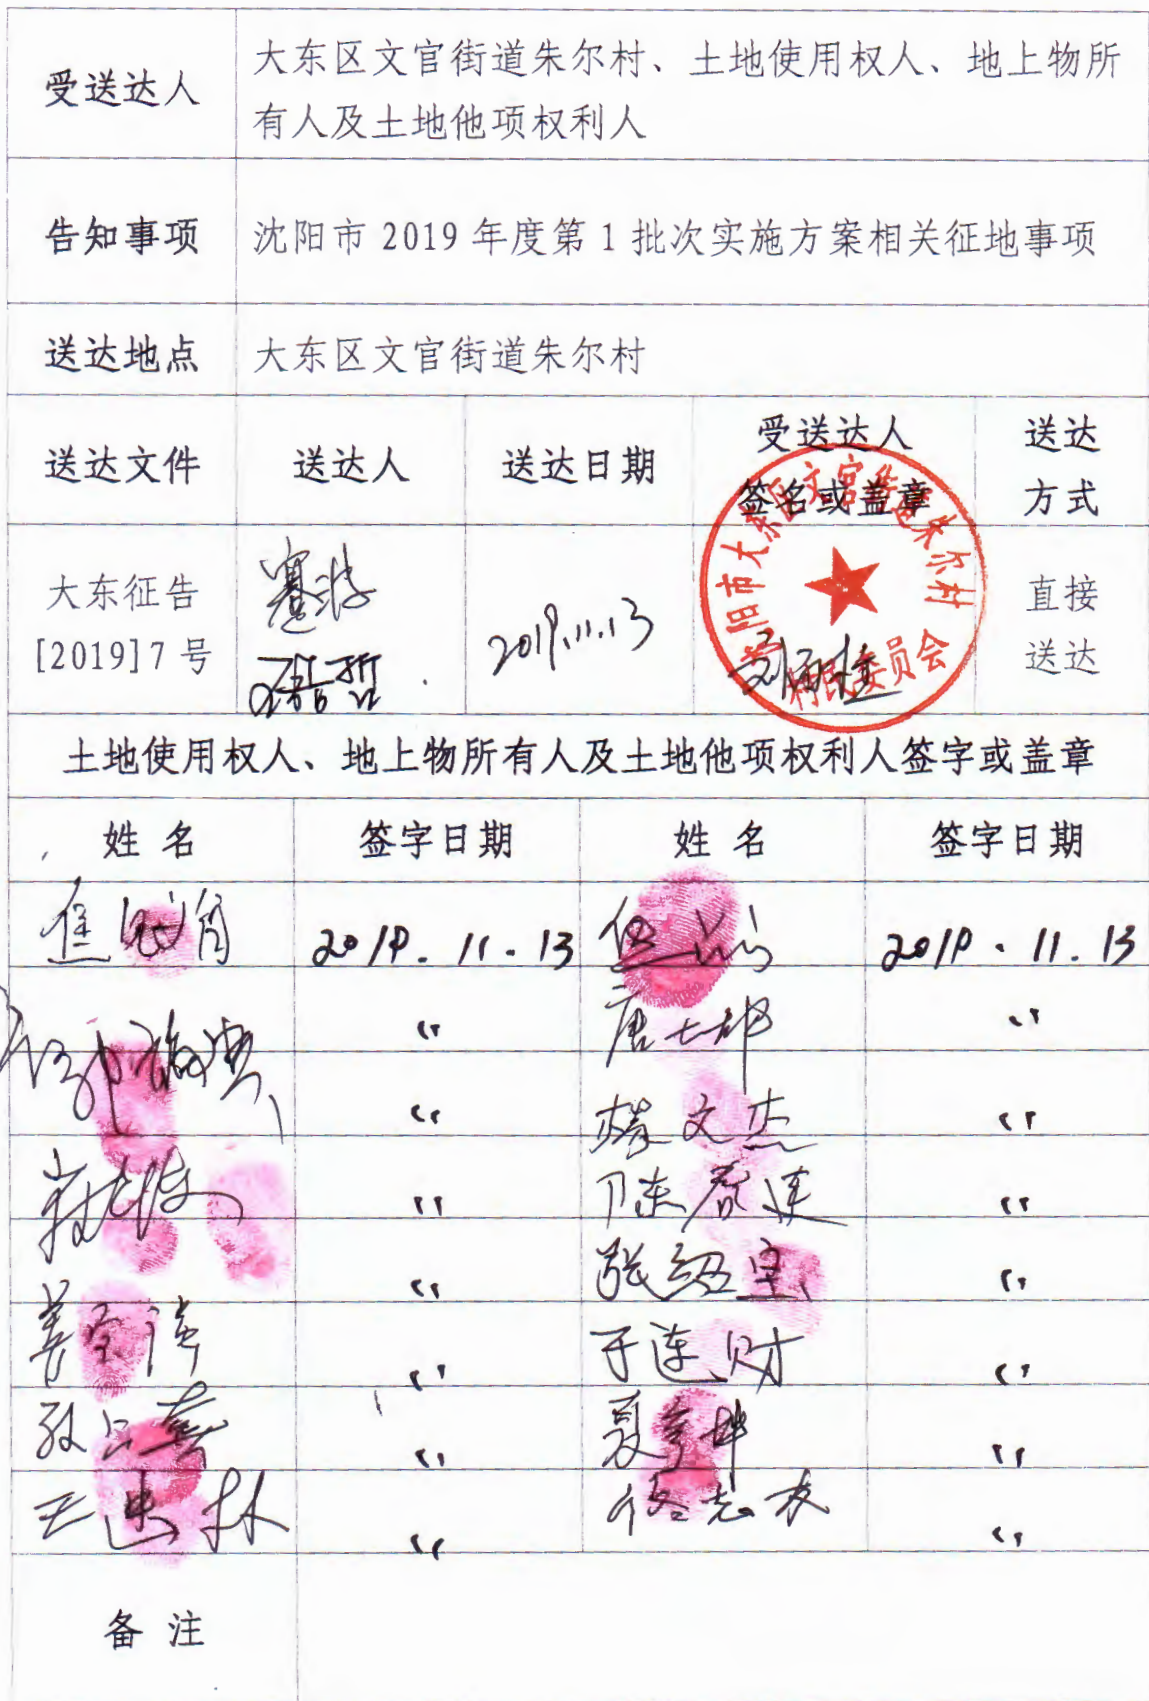 受送达人
大东区文官街道朱尔村、土地使用权人、地上物所
有人及土地他项权利人
告知事项
沈阳市 2019 年度第 1 批次实施方案相关征地事项
送达地点
大东区文官街道朱尔村
送达文件
送达人
送达日期
受送达人
签名或盖章
送达
方式
大东征告
[2019]7 号
2019.11.13
沈阳市大东区文官街道朱尔村
村民委员会
直接
送达
土地使用权人、地上物所有人及土地他项权利人签字或盖章
姓 名 签字日期 姓 名 签字日期
2019.11.13 2019.11.13
〃 唐七郎 〃
〃 杨文杰 〃
〃 陈春莲 〃
〃 张绍宝 〃
〃 于连财 〃
〃 〃
〃 佟志友 〃
备 注